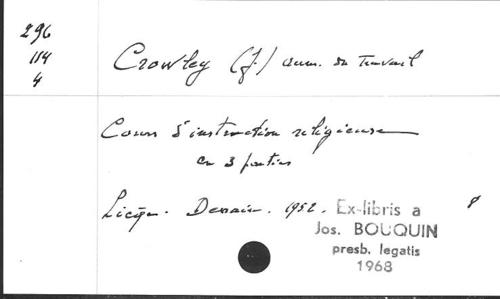 296
114
4
Crowley (J.) aum. du Travail
Cours d'instruction religieuse
en 3 parties
Liège. Dessain. 1952.
8
Ex-libris a
Jos. BOUQUIN
presb. legatis
1968